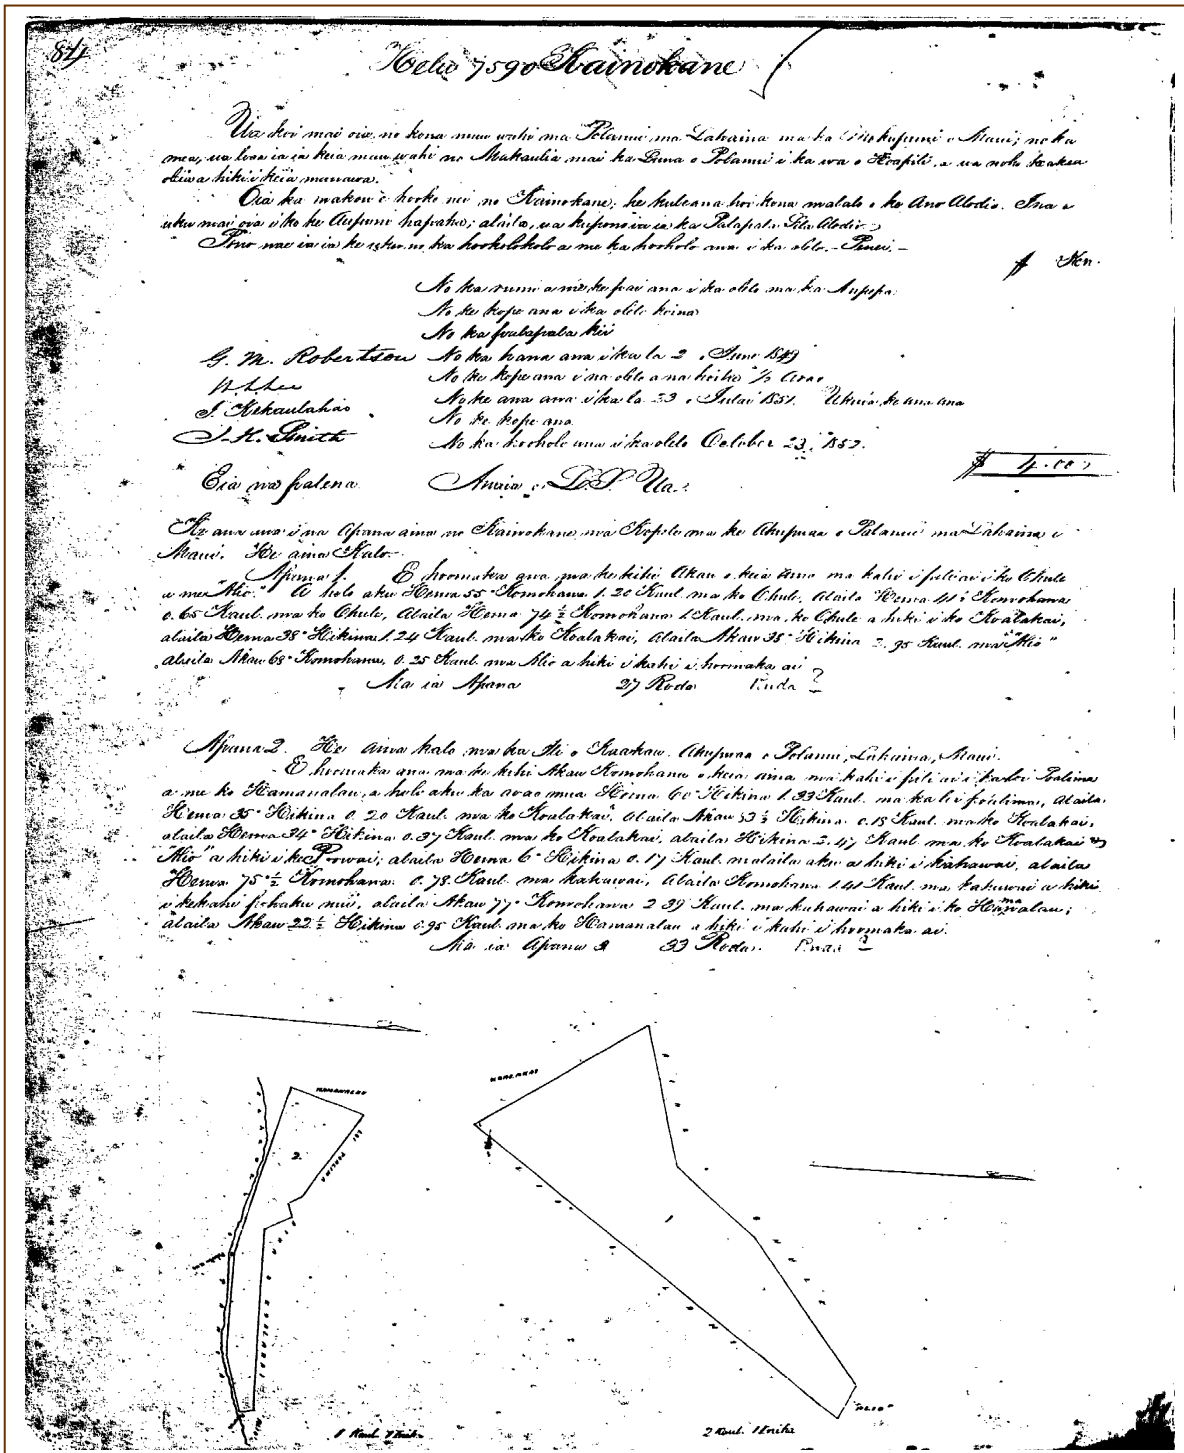 Helu 7590 Kainokane
Ua koi mai oia no kona mau wahi ma Polanui ma Lahaina ma ka Mokupuni o Maui; no ka
mea, ua loaa ia ia keia mau wahi no Makaulia mai ka Luna o Polanui i ka wa o Hoapili, a ua noho
a hiki i keia manawa.
Oia ka makou e hooko nei no Kainokane, he kuleana hoi kona malalo o ke Ano Alodio. Ina e
uku mai oia i ko ke Aupuni hapaha; alaila, ua kupono ia ia ka Palapala Sila Alodio.
Pono nae ia ia ke no ka hookolokolo a me ka hooholo ana i ka olelo. Penei.
$ Ken.
No ka rumi a me ke pai ana i ka olelo ma ka Nupepa
No ke kope ana i ka olelo koina
No ka palapala kii
G. M. Robertson No ka hana ana i ka la 2 o June 1849
W. L. Lee No ke kope ana i na olelo a na hoike
J. Kekaulahao No ke ana ana i ka la 23 o Iulai 1851. Ukuia ke ana ana
J. K. Smith No ke kope ana
No ka hooholo ana i ka olelo October 23, 1852.
$ 4.00
Eia na palena. Anaia e D. S. Ua.
Ke ana ana i na Apana aina no Kainokane, ma Kopili ma ke Ahupuaa o Polanui ma Lahaina i
Maui. He aina Kalo.
Apana 1. E hoomaka ana ma ke kihi Akau o keia aina ma kahi i pili ai i ko Ohule
a me "Alio" A holo aku Hema 55° Komohana 1.20 Kaul. ma ko Ohule, Alaila Hema 41½ Komohana
0.65 Kaul. ma ko Ohule, Alaila Hema 74½ Komohana 1 Kaul. ma ko Ohule a hiki i ko Koalakai,
alaila Hema 38° Hikina 1.24 Kaul. ma ko Koalakai, Alaila Akau 38° Hikina 2.95 Kaul. ma "Alio"
alaila Akau 68° Komohana, 0.25 Kaul. ma Alio a hiki i kahi i hoomaka ai
Ma ia Apana 27 Roda
Apana 2. He aina kalo ma ka Ili o Kuakau. Ahupuaa o Polanui, Lahaina, Maui.
E hoomaka ana ma ke kihi Akau Komohana o keia aina ma kahi i pili ai i ka loi Poalima
a me ko Hamanalau, a holo aku ka aoao mua Hema 60° Hikina 1.33 Kaul. ma ka loi poalima, Alaila
Hema 35° Hikina 0.20 Kaul. ma ko Koalakai, Alaila Akau 53½ Hikina 0.15 Kaul. ma ko Koalakai,
alaila Hema 34° Hikina 0.37 Kaul. ma ko Koalakai, alaila Hikina 2.47 Kaul. ma ko Koalakai
"Alio" a hiki i ke Poowai; alaila Hema 6° Hikina 0.17 Kaul. malaila aku a hiki i kahawai, alaila
Hema 75°½ Komohana 0.78 Kaul. ma kahawai, Alaila Komohana 1.41 Kaul. ma kahawai a hiki
i kekahi pohaku nui, alaila Akau 77° Komohana 2.39 Kaul. ma kahawai a hiki i ko Hamanalau;
alaila Akau 22½ Hikina 0.95 Kaul. ma ko Hamanalau a hiki i kahi i hoomaka ai.
Ma ia Apana 2 33 Roda.
KOALAKAI
HAMANALAU
LOI POALIMA
2.
1
KOALAKAI
"ALIO"
2 Kaul. 1 Enika